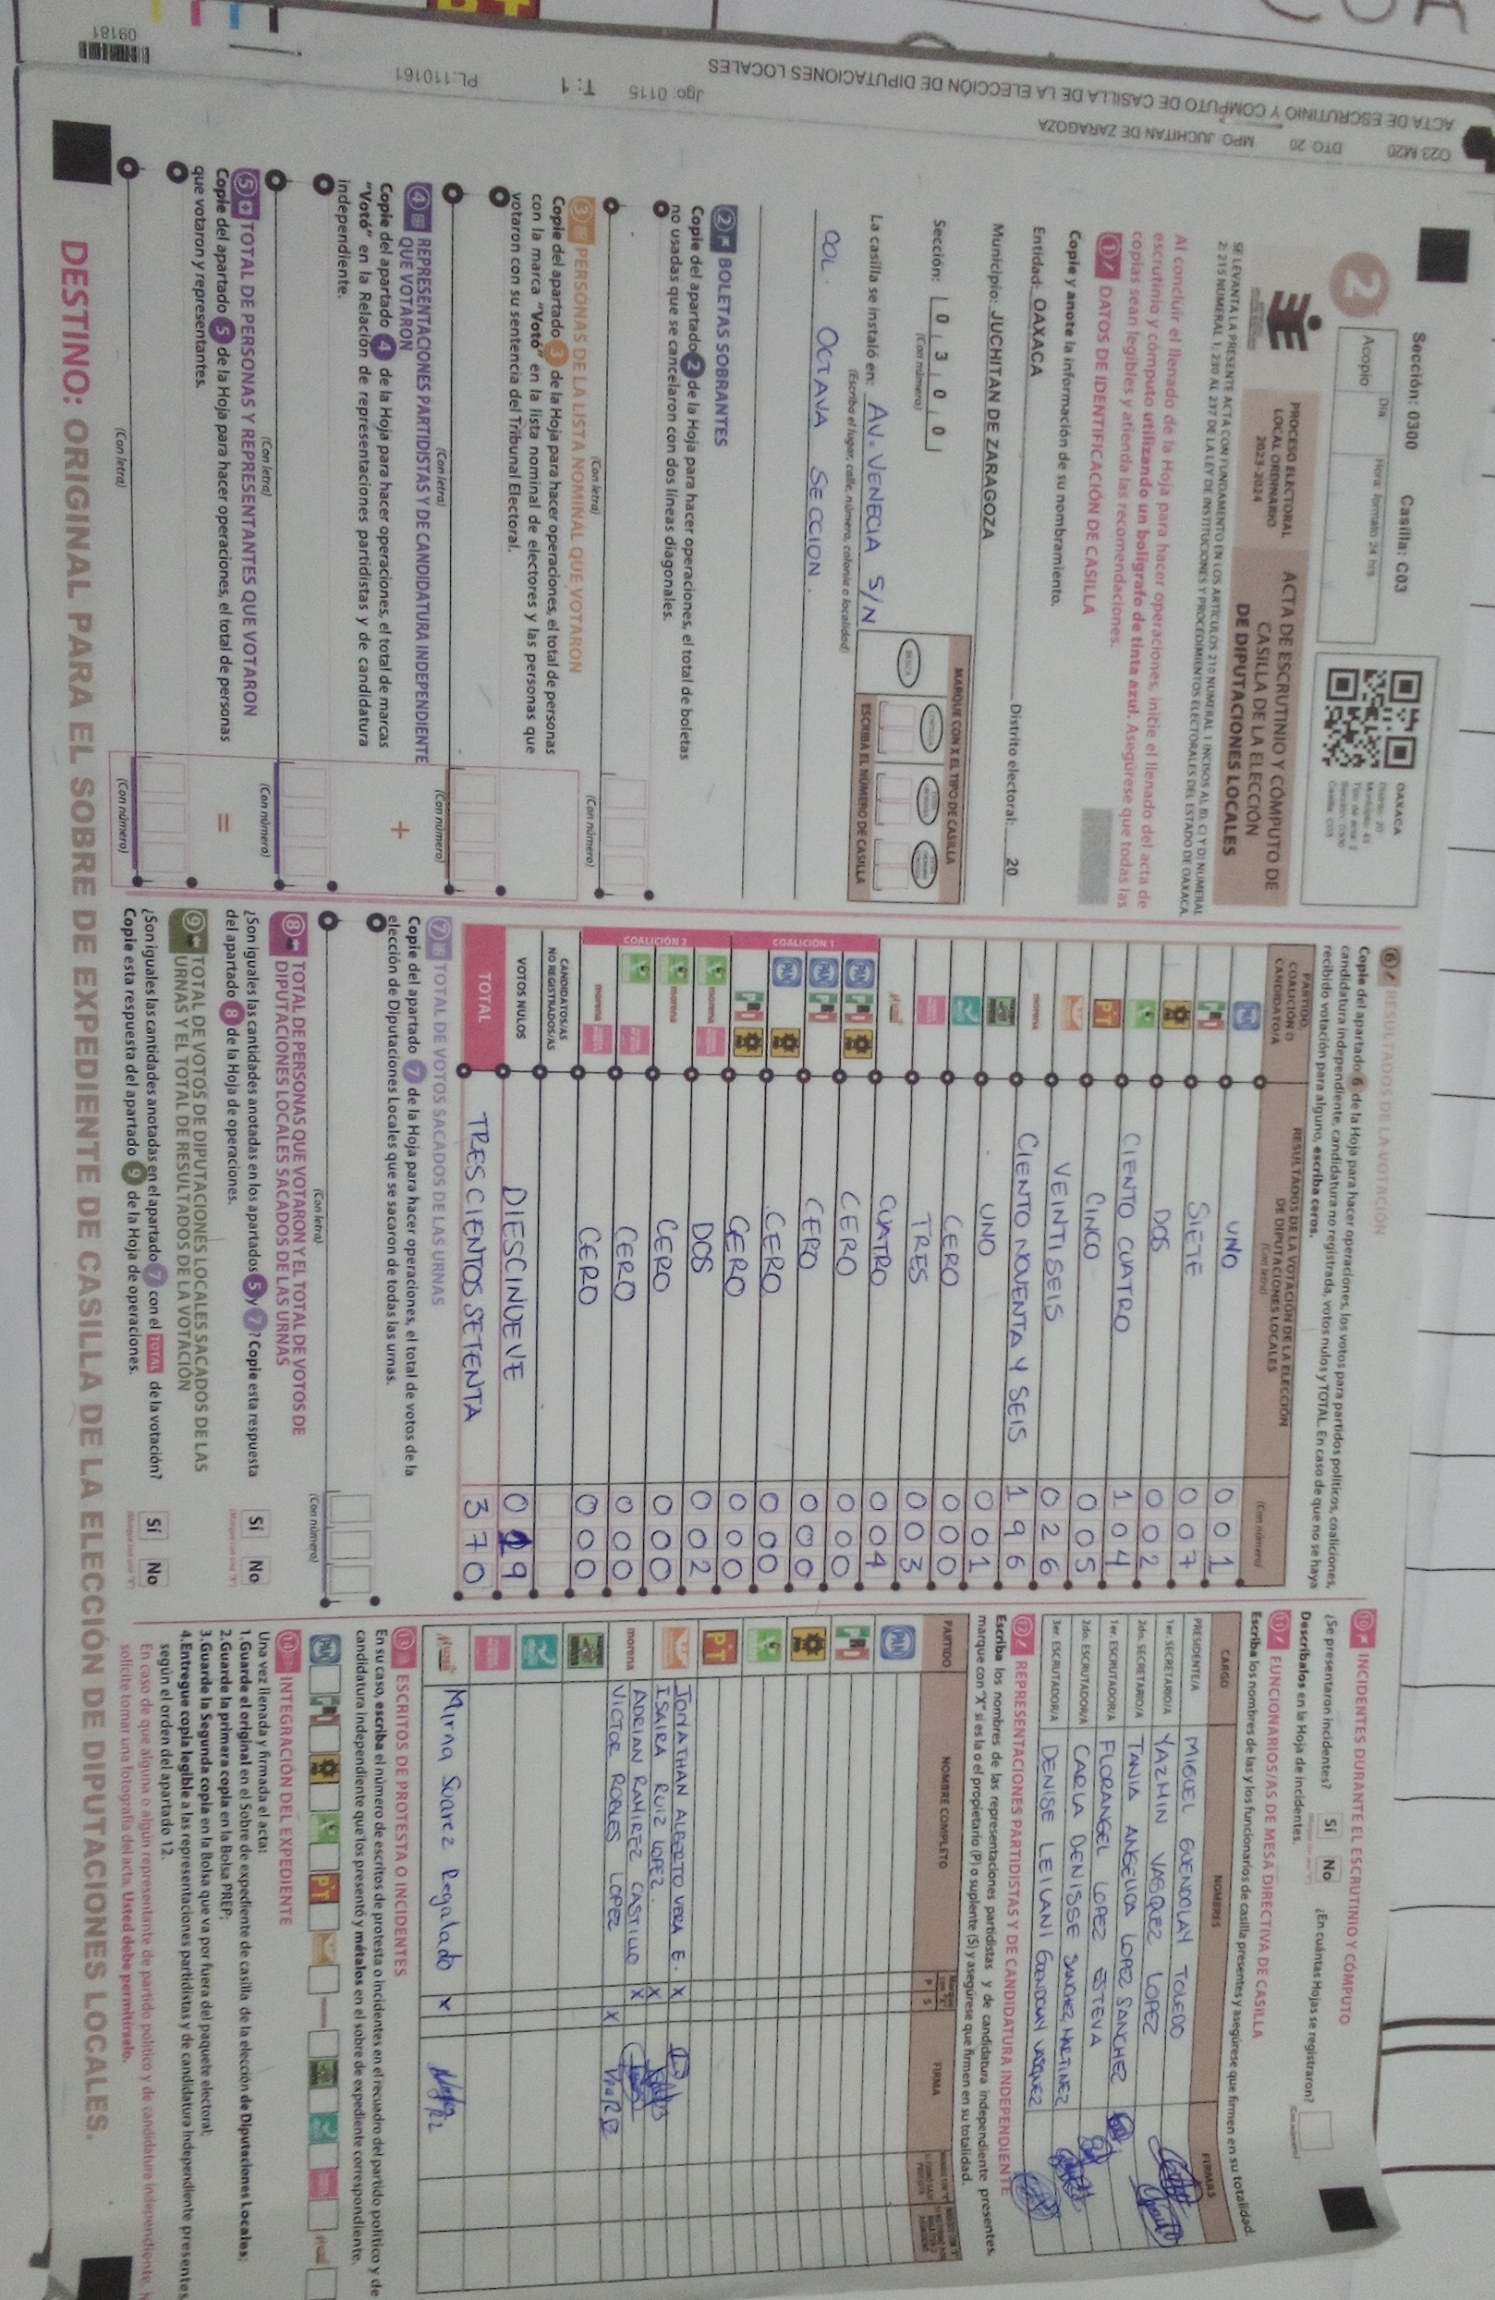 O23 M20 DTO. 20 MPO. JUCHITAN DE ZARAGOZA
ACTA DE ESCRUTINIO Y CÓMPUTO DE CASILLA DE LA ELECCIÓN DE DIPUTACIONES LOCALES
Jgo: 0115 T: 1 PL:110161
09181
Sección: 0300 Casilla: C03
2
Acopio
Día
Hora: formato 24 hrs
OAXACA
PROCESO ELECTORAL
LOCAL ORDINARIO
2023-2024
ACTA DE ESCRUTINIO Y CÓMPUTO DE
CASILLA DE LA ELECCIÓN
DE DIPUTACIONES LOCALES
Al concluir el llenado de la Hoja para hacer operaciones, inicie el llenado del acta de
escrutinio y cómputo utilizando un bolígrafo de tinta azul. Asegúrese que todas las
copias sean legibles y atienda las recomendaciones.
1 DATOS DE IDENTIFICACIÓN DE CASILLA
Copie y anote la información de su nombramiento.
Entidad: OAXACA Distrito electoral: 20
Municipio: JUCHITAN DE ZARAGOZA
Sección: 0 3 0 0
(Con número)
MARQUE CON X EL TIPO DE CASILLA
ESCRIBA EL NÚMERO DE CASILLA
La casilla se instaló en: AV. VENECIA S/N
(Escriba el lugar, calle, número, colonia o localidad)
COL. OCTAVA SECCION.
2 BOLETAS SOBRANTES
Copie del apartado 2 de la Hoja para hacer operaciones, el total de boletas
no usadas que se cancelaron con dos líneas diagonales.
(Con letra) (Con número)
3 PERSONAS DE LA LISTA NOMINAL QUE VOTARON
Copie del apartado 3 de la Hoja para hacer operaciones, el total de personas
con la marca "Votó" en la lista nominal de electores y las personas que
votaron con su sentencia del Tribunal Electoral.
(Con letra) (Con número)
4 REPRESENTACIONES PARTIDISTAS Y DE CANDIDATURA INDEPENDIENTE
QUE VOTARON
Copie del apartado 4 de la Hoja para hacer operaciones, el total de marcas
"Votó" en la Relación de representaciones partidistas y de candidatura
independiente.
+
(Con letra) (Con número)
5 TOTAL DE PERSONAS Y REPRESENTANTES QUE VOTARON
Copie del apartado 5 de la Hoja para hacer operaciones, el total de personas
que votaron y representantes.
=
(Con letra) (Con número)
6 RESULTADOS DE LA VOTACIÓN
Copie del apartado 6 de la Hoja para hacer operaciones, los votos para partidos políticos, coaliciones,
candidatura independiente, candidatura no registrada, votos nulos y TOTAL. En caso de que no se haya
recibido votación para alguno, escriba ceros.
PARTIDO, COALICIÓN O CANDIDATO/A
RESULTADOS DE LA VOTACIÓN DE LA ELECCIÓN
DE DIPUTACIONES LOCALES
(Con letra) (Con número)
PAN UNO 001
PRI SIETE 007
DOS 002
CIENTO CUATRO 104
PT CINCO 005
VEINTISEIS 026
morena CIENTO NOVENTA Y SEIS 196
UNO 001
CERO 000
TRES 003
CUATRO 004
COALICIÓN 1
PAN PRI CERO 000
PAN PRI CERO 000
PAN CERO 000
PRI CERO 000
COALICIÓN 2
morena DOS 002
morena CERO 000
CERO 000
morena CERO 000
CANDIDATOS/AS
NO REGISTRADOS/AS
VOTOS NULOS DIESCINUEVE 019
TOTAL TRESCIENTOS SETENTA 370
7 TOTAL DE VOTOS SACADOS DE LAS URNAS
Copie del apartado 7 de la Hoja para hacer operaciones, el total de votos de la
elección de Diputaciones Locales que se sacaron de todas las urnas.
(Con letra) (Con número)
8 TOTAL DE PERSONAS QUE VOTARON Y EL TOTAL DE VOTOS DE
DIPUTACIONES LOCALES SACADOS DE LAS URNAS
¿Son iguales las cantidades anotadas en los apartados 5 y 7? Copie esta respuesta
del apartado 8 de la Hoja de operaciones.
Sí No
9 TOTAL DE VOTOS DE DIPUTACIONES LOCALES SACADOS DE LAS
URNAS Y EL TOTAL DE RESULTADOS DE LA VOTACIÓN
¿Son iguales las cantidades anotadas en el apartado 7 con el TOTAL de la votación?
Copie esta respuesta del apartado 9 de la Hoja de operaciones.
Sí No
10 INCIDENTES DURANTE EL ESCRUTINIO Y CÓMPUTO
¿Se presentaron incidentes? Sí No ¿En cuántas Hojas se registraron?
Descríbalos en la Hoja de incidentes.
11 FUNCIONARIOS/AS DE MESA DIRECTIVA DE CASILLA
Escriba los nombres de las y los funcionarios de casilla presentes y asegúrese que firmen en su totalidad.
CARGO NOMBRES FIRMAS
PRESIDENTE/A MIGUEL GUENDOLAY TOLEDO
1er. SECRETARIO/A YAZMIN VASQUEZ LOPEZ
2do. SECRETARIO/A TANIA ANGELICA LOPEZ SANCHEZ
1er. ESCRUTADOR/A FLORANGEL LOPEZ ESTEVA
2do. ESCRUTADOR/A CARLA DENISSE SANCHEZ MARTINEZ
3er. ESCRUTADOR/A DENISE LEILANI GUENDOLAY VASQUEZ
12 REPRESENTACIONES PARTIDISTAS Y DE CANDIDATURA INDEPENDIENTE
Escriba los nombres de las representaciones partidistas y de candidatura independiente presentes,
marque con "X" si es la o el propietario (P) o suplente (S) y asegúrese que firmen en su totalidad.
PARTIDO NOMBRE COMPLETO P S FIRMA
PAN
PRI
PT
JONATHAN ALBERTO VERA E. X
ISAIRA RUIZ LOPEZ. X
morena ADRIAN RAMIREZ CASTILLO X
VICTOR ROBLES LOPEZ X
Mirna Suarez Regalado X
13 ESCRITOS DE PROTESTA O INCIDENTES
En su caso, escriba el número de escritos de protesta o incidentes en el recuadro del partido político y de
candidatura independiente que los presentó y métalos en el sobre de expediente correspondiente.
PAN PRI PT
14 INTEGRACIÓN DEL EXPEDIENTE
Una vez llenada y firmada el acta:
1.Guarde el original en el Sobre de expediente de casilla de la elección de Diputaciones Locales;
2.Guarde la primera copia en la Bolsa PREP;
3.Guarde la Segunda copia en la Bolsa que va por fuera del paquete electoral;
4.Entregue copia legible a las representaciones partidistas y de candidatura independiente presentes
según el orden del apartado 12.
En caso de que alguna o algún representante de partido político y de candidatura independiente,
solicite tomar una fotografía del acta. Usted debe permitírselo.
DESTINO: ORIGINAL PARA EL SOBRE DE EXPEDIENTE DE CASILLA DE LA ELECCIÓN DE DIPUTACIONES LOCALES.